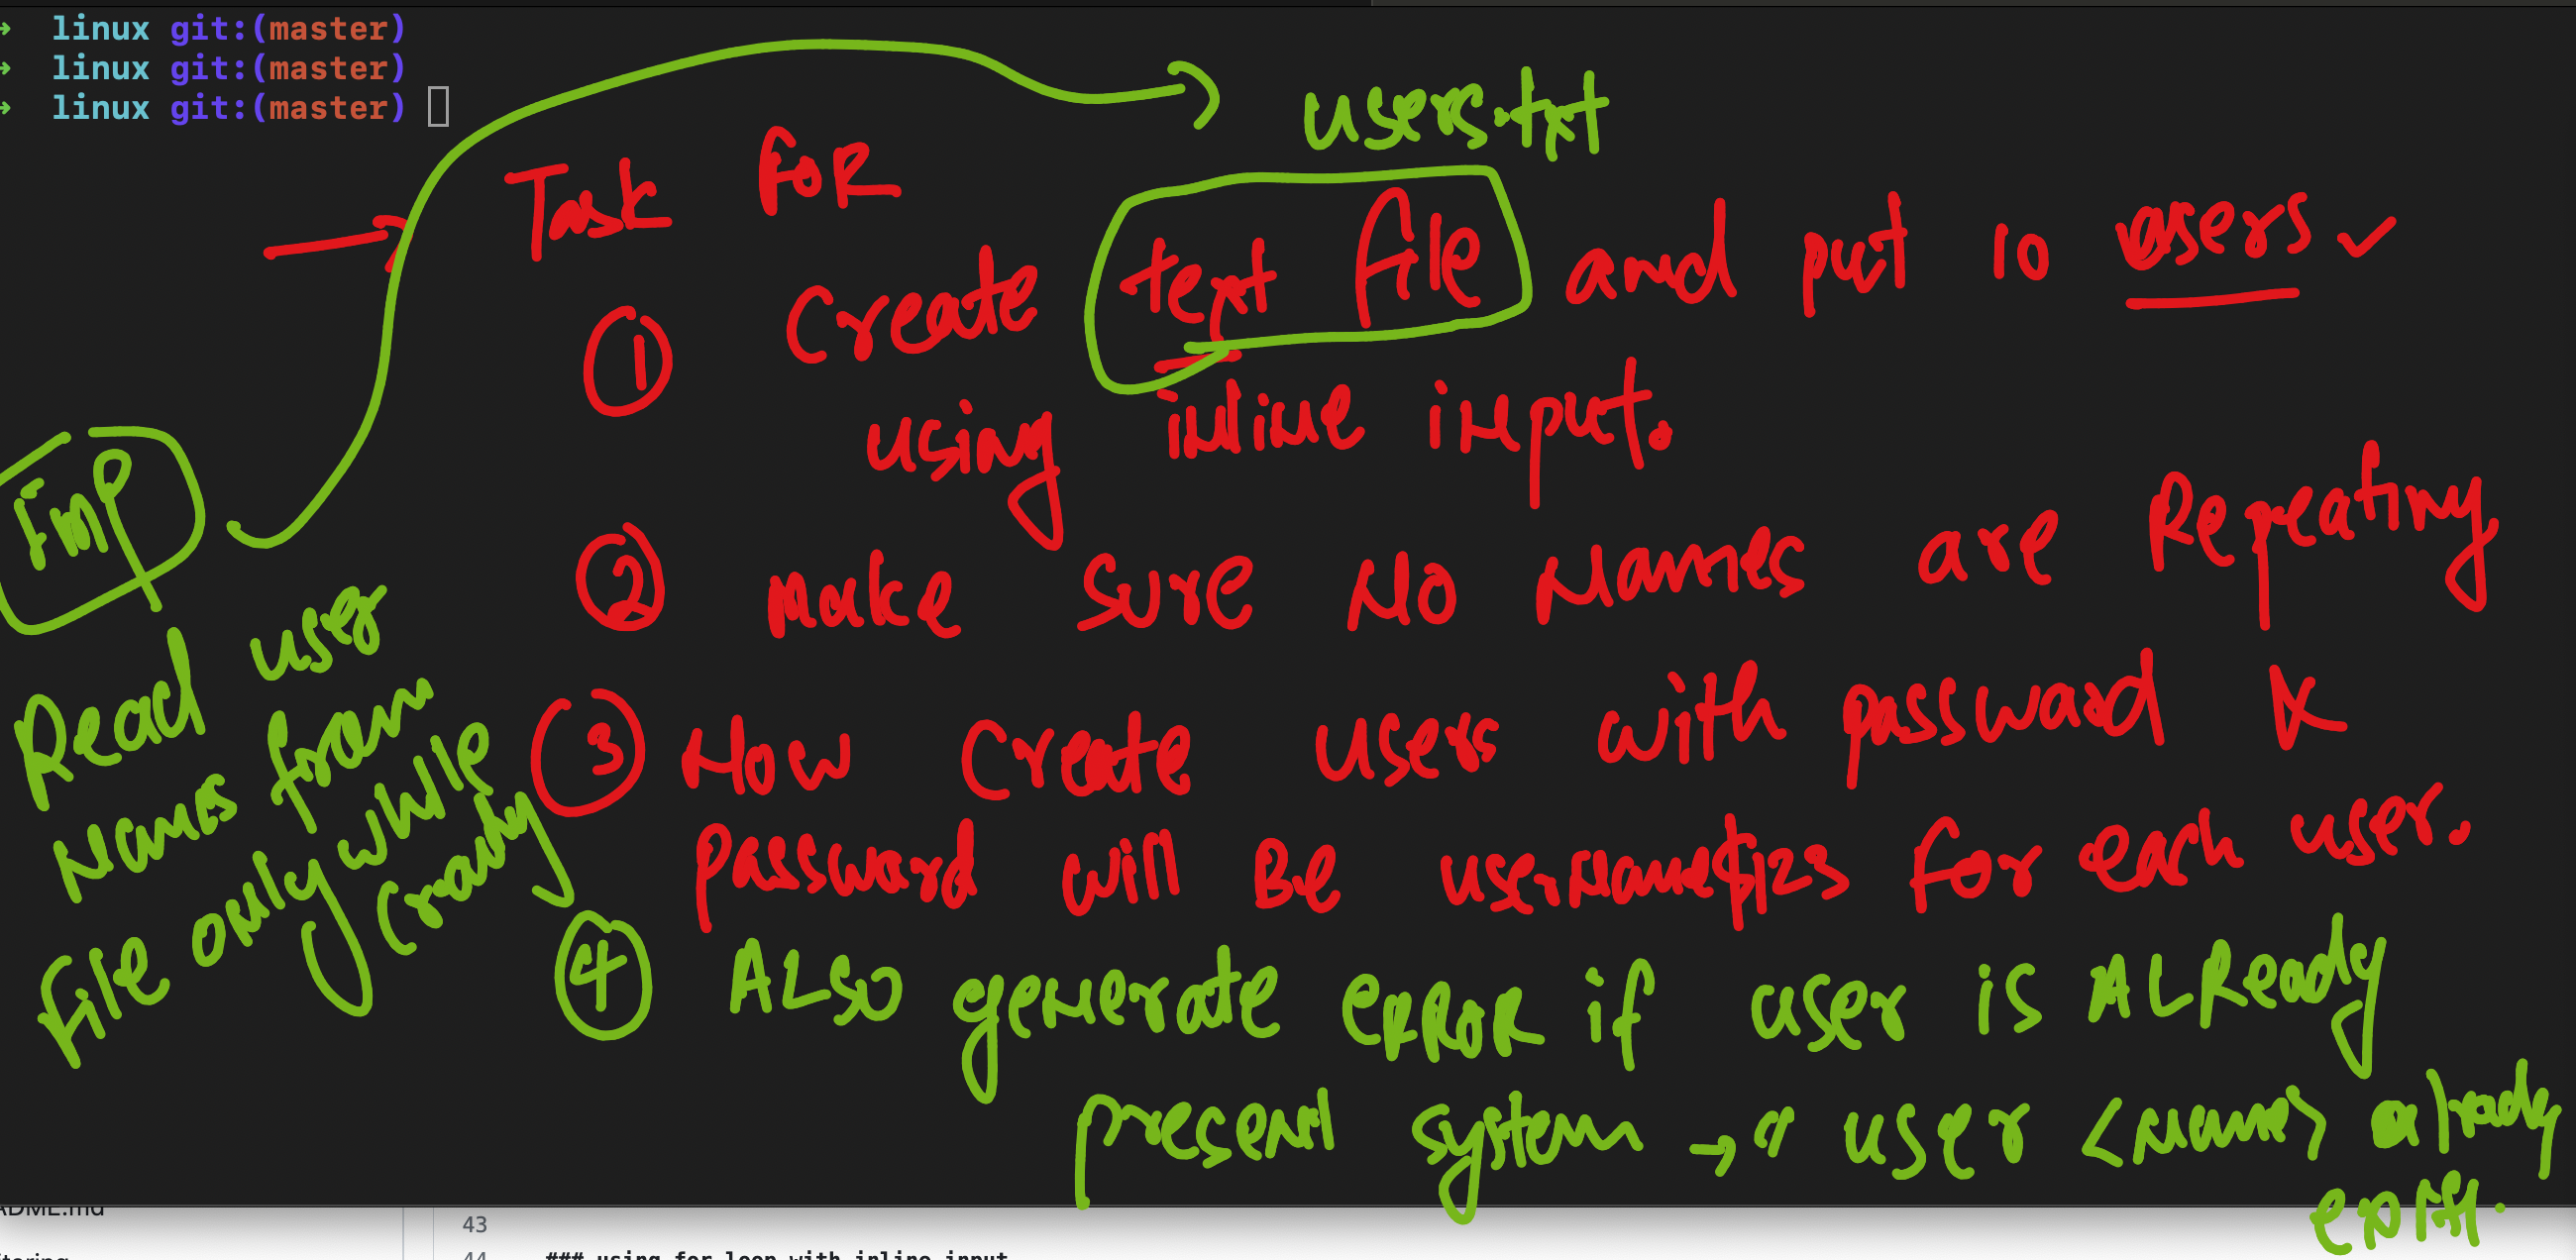 ➜ linux git:(master)
➜ linux git:(master)
➜ linux git:(master)
users.txt
Task FOR
① Create text file and put 10 users ✓
using inline input.
② make sure No Names are Repeating
③ Now Create users with password &
password will Be userName$123 for each user.
④ ALSO generate ERROR if user is ALReady
present system → " user <name> already
exist.
Imp
Read user
Names from
file only while
creating
ADME.md
43
44 ### using for loop with inline input